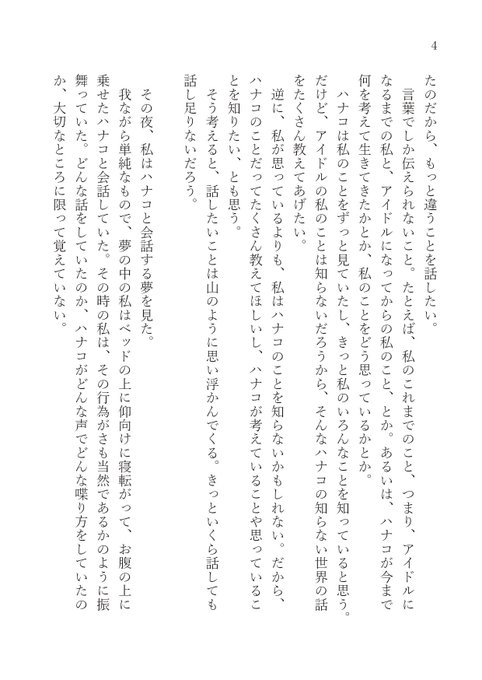 4
たのだから、もっと違うことを話したい。
言葉でしか伝えられないこと。たとえば、私のこれまでのこと、つまり、アイドルに
なるまでの私と、アイドルになってからの私のこと、とか。あるいは、ハナコが今まで
何を考えて生きてきたかとか、私のことをどう思っているかとか。
ハナコは私のことをずっと見ていたし、きっと私のいろんなことを知っていると思う。
だけど、アイドルの私のことは知らないだろうから、そんなハナコの知らない世界の話
をたくさん教えてあげたい。
逆に、私が思っているよりも、私はハナコのことを知らないかもしれない。だから、
ハナコのことだってたくさん教えてほしいし、ハナコが考えていることや思っているこ
とを知りたい、とも思う。
そう考えると、話したいことは山のように思い浮かんでくる。きっといくら話しても
話し足りないだろう。
その夜、私はハナコと会話する夢を見た。
我ながら単純なもので、夢の中の私はベッドの上に仰向けに寝転がって、お腹の上に
乗せたハナコと会話していた。その時の私は、その行為がさも当然であるかのように振
舞っていた。どんな話をしていたのか、ハナコがどんな声でどんな喋り方をしていたの
か、大切なところに限って覚えていない。